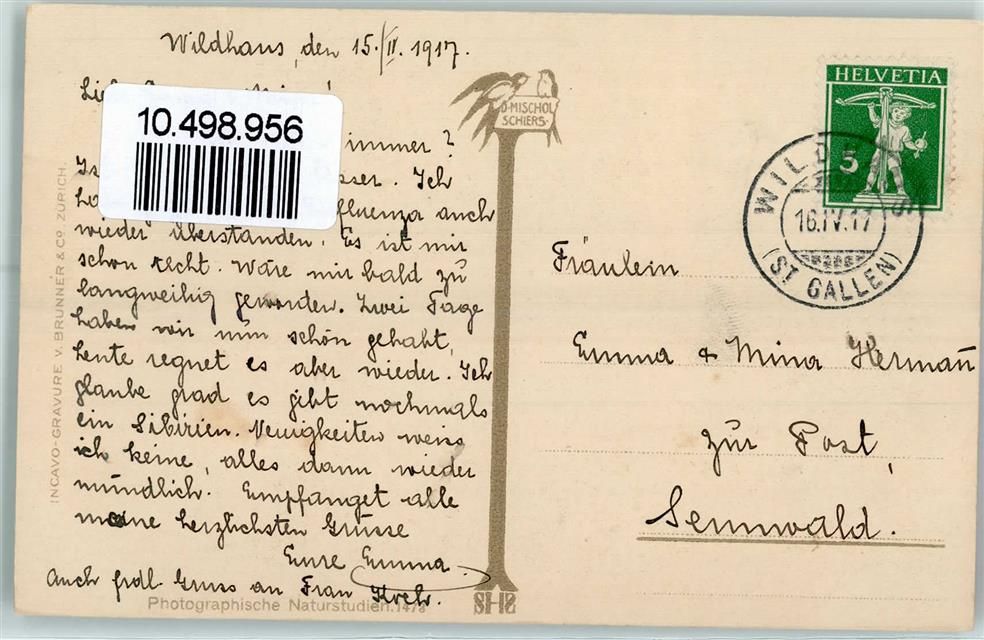 Wildhaus, den 15./IV. 1917.
10.498.956
immer?
sser. Ich
fluenza auch
wieder überstanden. Es ist mir
schon recht. Wäre mir bald zu
langweilig geworden. Zwei Tage
haben wir nun schön gehabt,
heute regnet es aber wieder. Ich
glaube grad es gibt nochmals
ein Sibirien. Neuigkeiten weiss
ich keine, alles dann wieder
mündlich. Empfanget alle
meine herzlichsten Grüsse
Eure Emma.
Auch frdl. Gruss an Frau
Photographische Naturstudien. 147
INCAVO-GRAVURE V. BRUNNER & CO. ZÜRICH.
D. MISCHOL
SCHIERS.
SHS
HELVETIA
5
WILDHAUS
16.IV.17
(ST GALLEN)
Fräulein
Emma & Mina Hermañ
zur Post,
Sennwald.